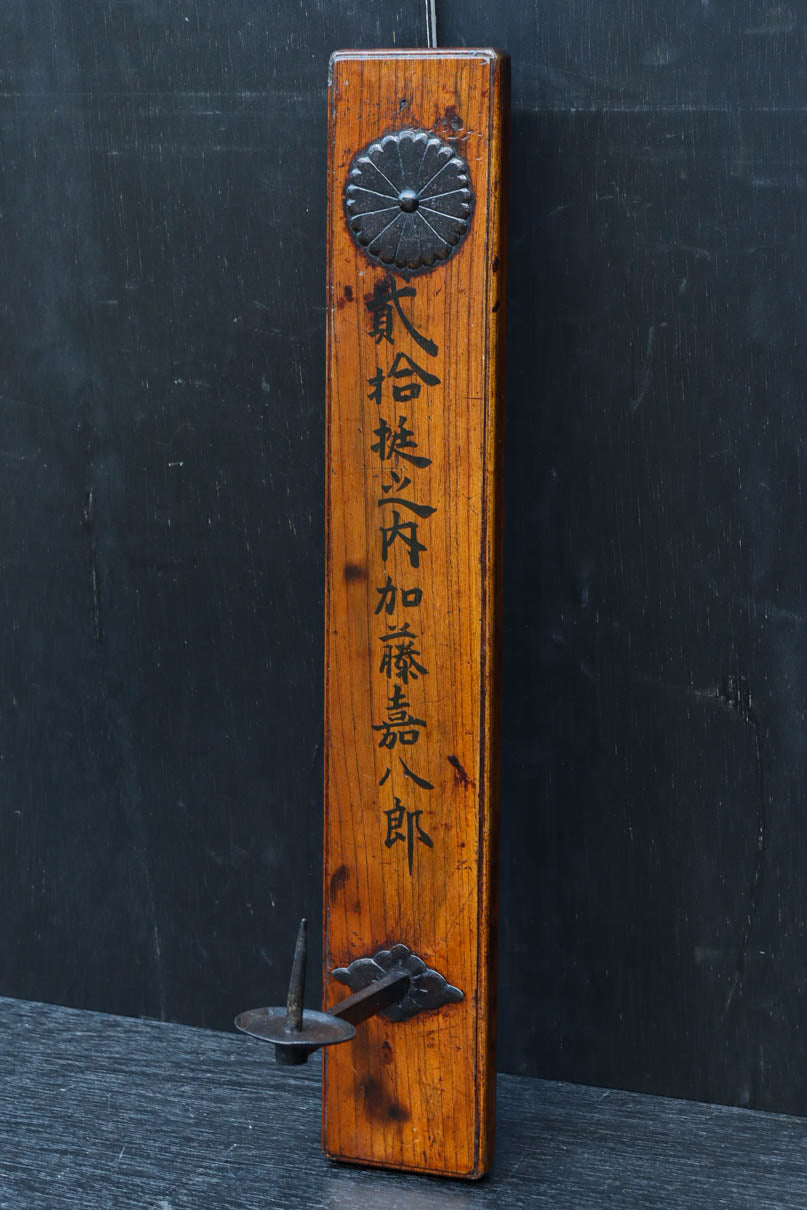 貳拾挺之内加藤嘉八郎